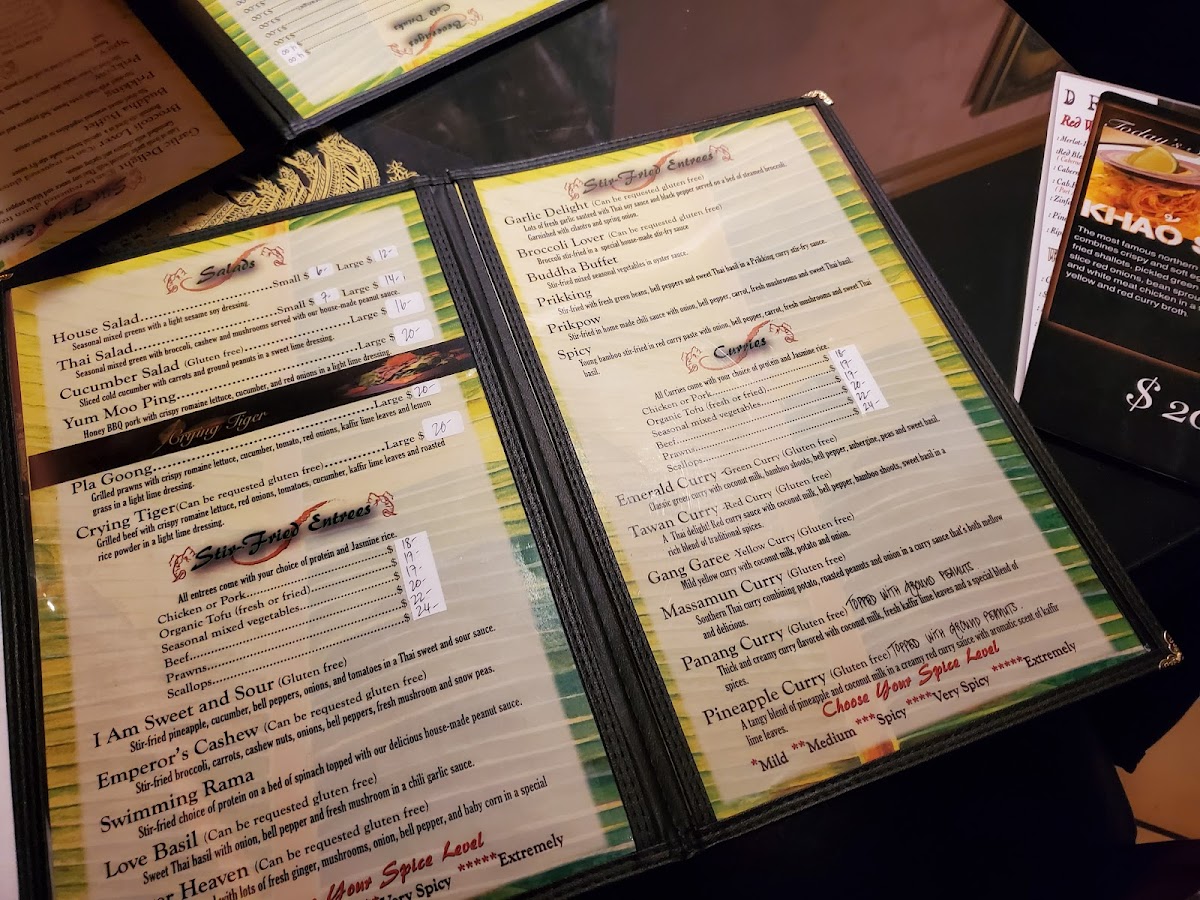 Salads
House Salad....................Small $ 6- Large $ 12-
Seasonal mixed greens with a light sesame soy dressing.
Thai Salad....................Small $ 7- Large $ 14-
Seasonal mixed green with broccoli, cashew and mushrooms served with our house-made peanut sauce.
Cucumber Salad (Gluten free)....................Large $ 16-
Sliced cold cucumber with carrots and ground peanuts in a sweet lime dressing.
Yum Moo Ping....................Large $ 20-
Honey BBQ pork with crispy romaine lettuce, cucumber, and red onions in a light lime dressing
Crying Tiger
Pla Goong....................Large $ 20-
Grilled prawns with crispy romaine lettuce, cucumber, tomato, red onions, kaffir lime leaves and lemon
grass in a light lime dressing.
Crying Tiger(Can be requested gluten free)....................Large $ 20-
Grilled beef with crispy romaine lettuce, red onions, tomatoes, cucumber, kaffir lime leaves and roasted
rice powder in a light lime dressing.
Stir-Fried Entrees
All entrees come with your choice of protein and Jasmine rice.
Chicken or Pork....................$ 18-
Organic Tofu (fresh or fried)....................$ 19-
Seasonal mixed vegetables....................$ 19-
Beef....................$ 20-
Prawns....................$ 22-
Scallops....................$ 24-
I Am Sweet and Sour (Gluten free)
Stir-fried pineapple, cucumber, bell peppers, onions, and tomatoes in a Thai sweet and sour sauce.
Emperor's Cashew (Can be requested gluten free)
Stir-fried broccoli, carrots, cashew nuts, onions, bell peppers, fresh mushroom and snow peas.
Swimming Rama
Stir-fried choice of protein on a bed of spinach topped with our delicious house-made peanut sauce.
Love Basil (Can be requested gluten free)
Sweet Thai basil with onion, bell pepper and fresh mushroom in a chili garlic sauce.
Heaven (Can be requested gluten free)
with lots of fresh ginger, mushrooms, onion, bell pepper, and baby corn in a special
Your Spice Level
Very Spicy *****Extremely
Stir-Fried Entrees
Garlic Delight (Can be requested gluten free)
Lots of fresh garlic sauteed with Thai soy sauce and black pepper served on a bed of steamed broccoli.
Garnished with cilantro and spring onion.
Broccoli Lover (Can be requested gluten free)
Broccoli stir-fried in a special house-made stir-fry sauce
Buddha Buffet
Stir-fried mixed seasonal vegetables in oyster sauce.
Prikking
Stir-fried with fresh green beans, bell peppers and sweet Thai basil in a Prikking curry stir-fry sauce.
Prikpow
Stir-fried in home made chili sauce with onion, bell pepper, carrot, fresh mushrooms and sweet Thai basil.
Spicy
Young bamboo stir-fried in red curry paste with onion, bell pepper, carrot, fresh mushrooms and sweet Thai
basil.
Curries
All Curries come with your choice of protein and Jasmine rice.
Chicken or Pork....................$ 18-
Organic Tofu (fresh or fried)....................$ 19-
Seasonal mixed vegetables....................$ 19-
Beef....................$ 20-
Prawns....................$ 22-
Scallops....................$ 24-
Emerald Curry -Green Curry (Gluten free)
Classic green curry with coconut milk, bamboo shoots, bell pepper, aubergine, peas and sweet basil.
Tawan Curry -Red Curry (Gluten free)
A Thai delight! Red curry sauce with coconut milk, bell pepper, bamboo shoots, sweet basil in a
rich blend of traditional spices.
Gang Garee -Yellow Curry (Gluten free)
Mild yellow curry with coconut milk, potato and onion.
Massamun Curry (Gluten free)
Southern Thai curry combining potato, roasted peanuts and onion in a curry sauce that's both mellow
and delicious.
Panang Curry (Gluten free) TOPPED WITH GROUND PEANUTS
Thick and creamy curry flavored with coconut milk, fresh kaffir lime leaves and a special blend of
spices.
Pineapple Curry (Gluten free) TOPPED WITH GROUND PEANUTS.
A tangy blend of pineapple and coconut milk in a creamy red curry sauce with aromatic scent of kaffir
lime leaves.
Choose Your Spice Level
*Mild **Medium ***Spicy ****Very Spicy *****Extremely
Beverages
Cold Drinks
Garlic Delight
Broccoli Lover
Buddha Buffet
Prikking
Today's
KHAO
The most famous northern
combines crispy and soft
fried shallets, pickled green
slice red onions, bean sprou
and white meat chicken in
yellow and red curry broth.
$ 20